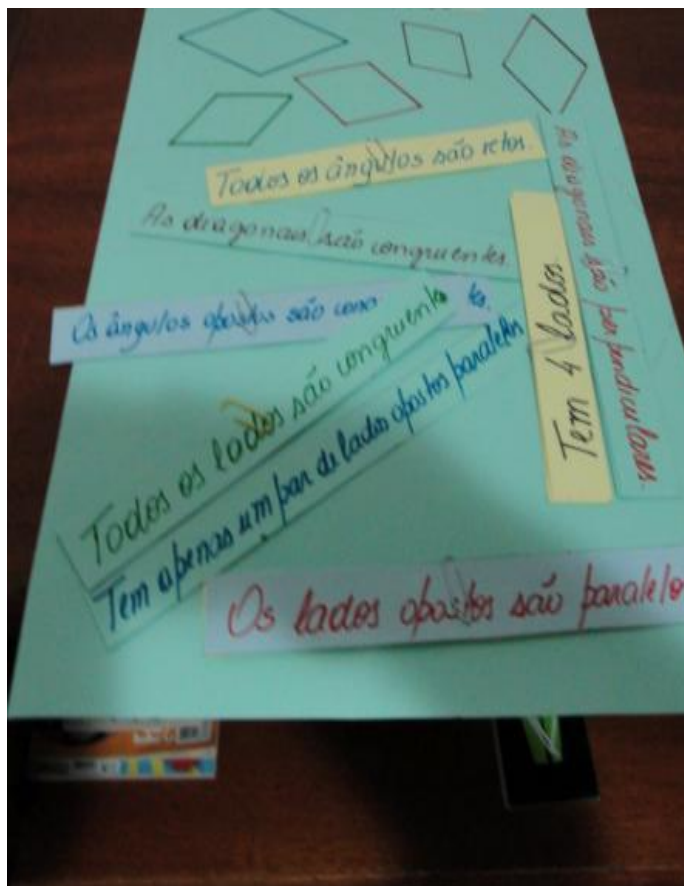 Todos os ângulos são retos.
As diagonais são congruentes.
As diagonais são perpendiculares.
Tem 4 lados
Os ângulos opostos são
Todos os lados são congruente
Tem apenas um par de lados opostos paralelos
Os lados opostos são paralelo